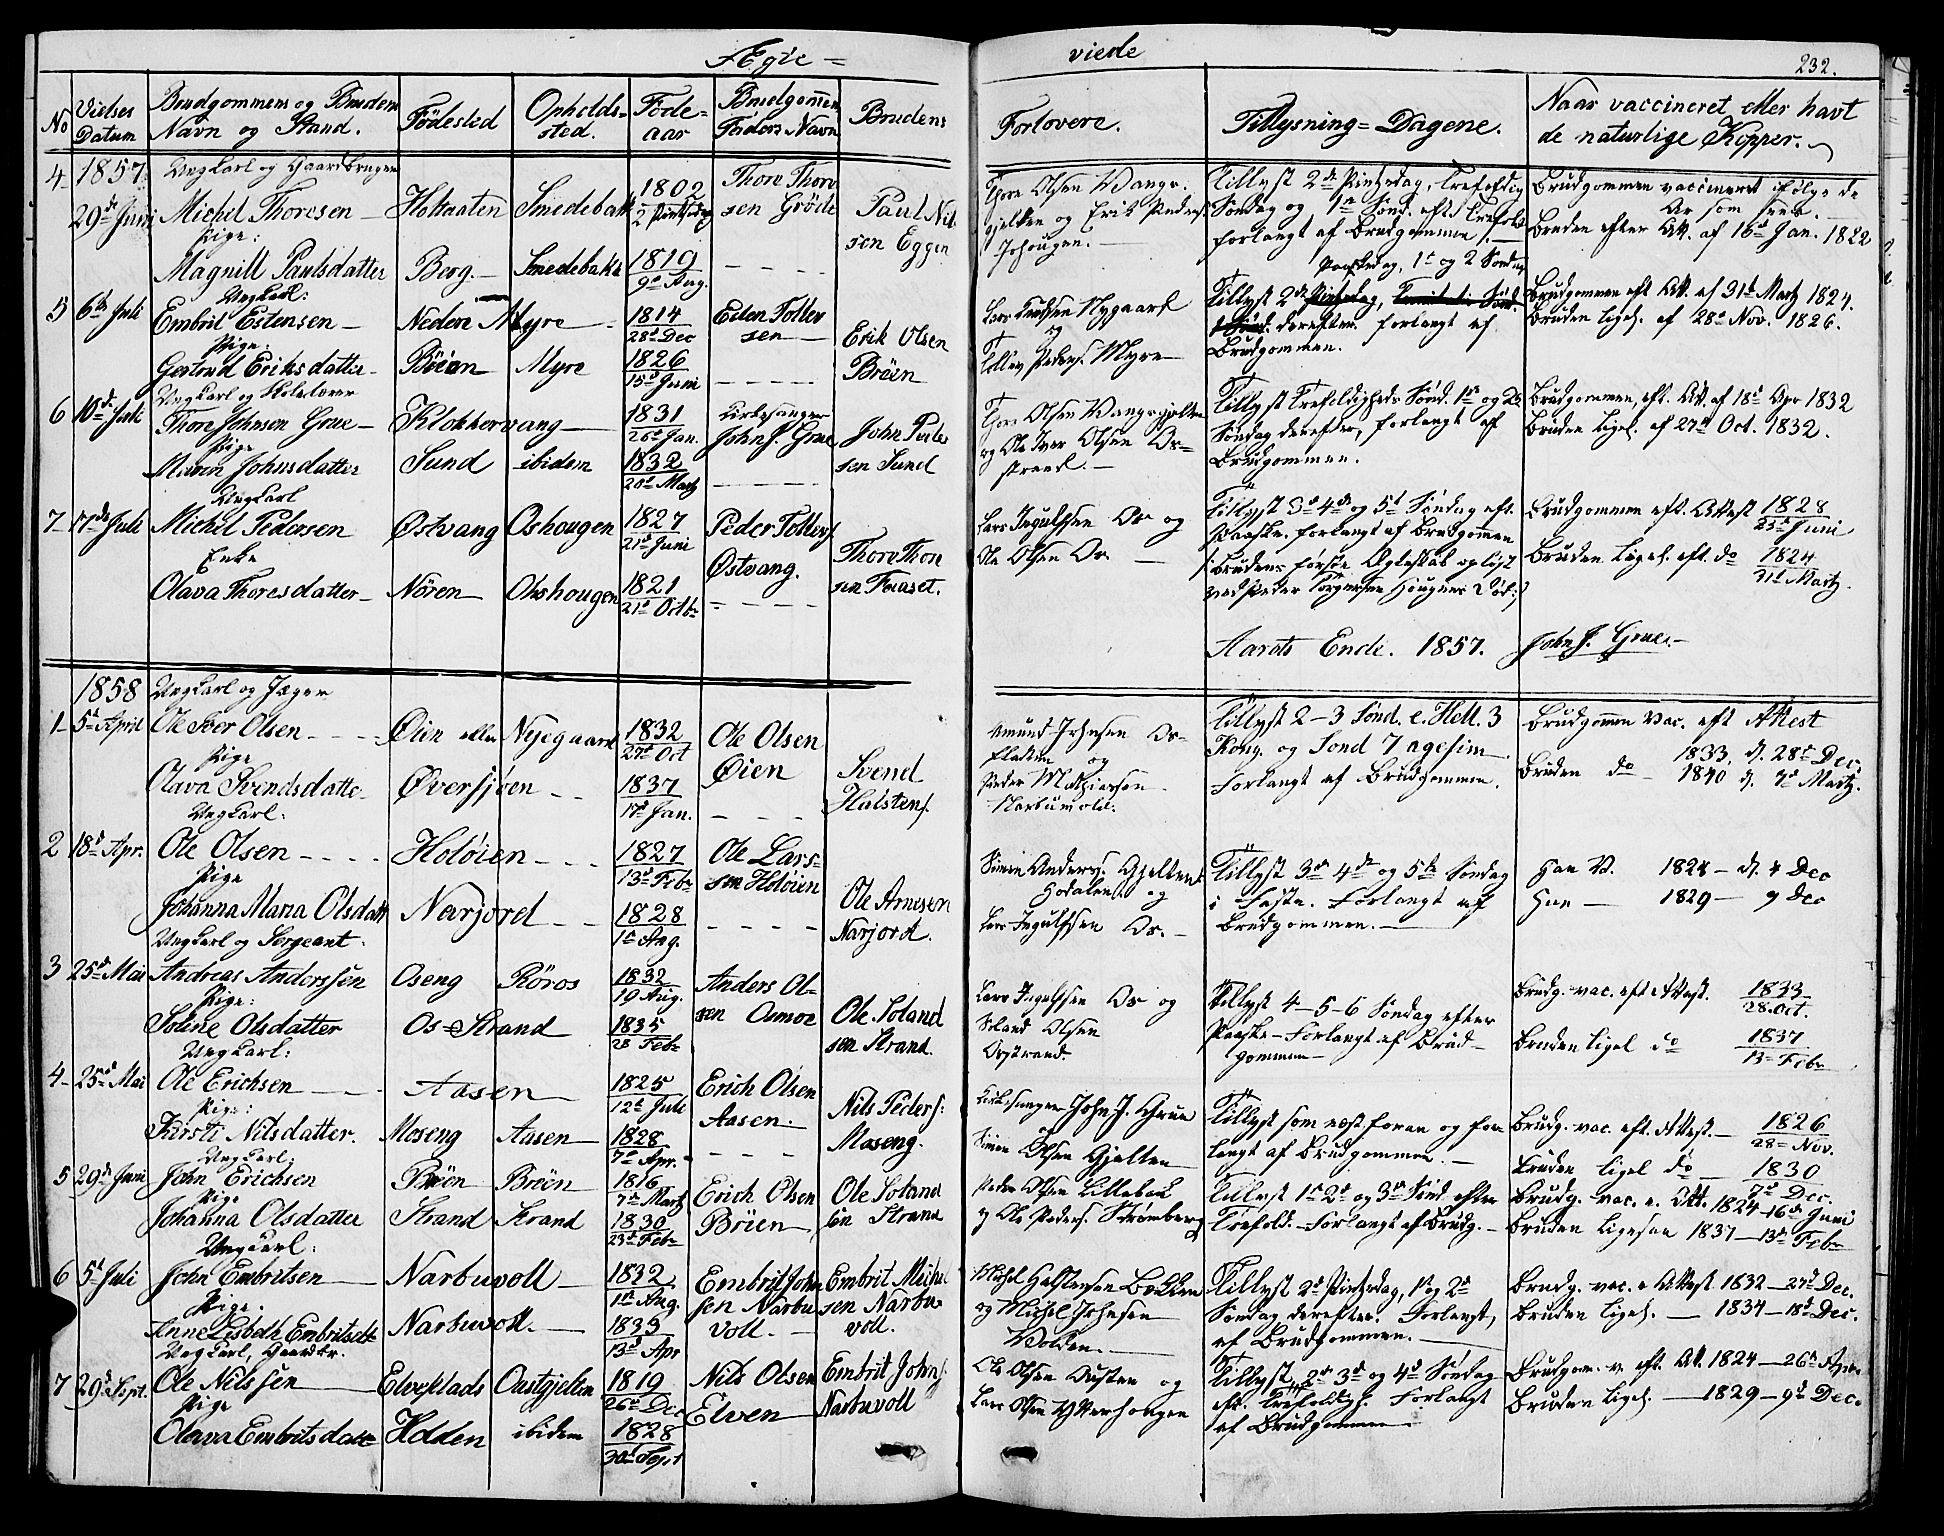 Ægte=
viede
232.
No
Vielses Datum
Brudgommens og Brudens Navn og Stand.
Fødested
Opholds-sted.
Føde-aar
Brudgommens Faders Navn
Brudens
Forlovere.
Tillysning=Dagene.
Naar vaccineret eller havt de naturlige Kopper.
4 1857 Ungkarl og Gaardbruger
29de Juni Michel Thoresen — Smedebak 1802 2 Thore Thoresen
Pige:
Magnill Paulsdatter Berg. — Smedebak 1819 9de Aug. Paul Nilsen Eggen
Thore Olsen og Erik Peders.
Tillyst 2den Pintsedag, Trefoldig
Søndag og 1ste Sønd. eft. Trefold.
forlangt af Brudgommen.
Brudgommen vaccineret ifølge
Bruden efter Att. af 16de Jan. 1822
Ungkarl:
5 6te Juli Embrit Estensen — Nedere Myre — 1814 28de Dec
Pige:
Gertrud Eriksdatter — Bröen Myre 1826 15de Juni Erik Olsen Bröen
Nygaard
og
Peders. Myre
Paaskedag, 1ste og 2 Søndag
Tillyst 2den
derefter. forlangt af
Brudgommen.
Brudgommen eft. Att. af 31te Martz 1824.
Bruden ligel. af 28de Nov. 1826.
Ungkarl og Skolelærer
6 10de Juli Thore Johnsen Grue — Klokkervang — 1831 26de Jan. Kirkesanger John J. Grue
Pige
Maren Johnsdatter Sund ibidem 1832 20de Martz John Pedersen Sund
Thore Olsen Vangsgjelten
og Ole Iver Olsen Os=
strand. —
Tillyst Trefoldigheds Sønd. 1ste og 2den
Søndag derefter, forlangt af
Brudgommen.
Brudgommen, eft. Att. af 18de Apr 1832
Bruden ligel. af 27de Oct. 1832.
Ungkarl
7 17de Juli Michel Pedersen Østvang Oshougen 1827 21de Juni Peder Tollefs. Østvang.
Enke
Olava Thoresdatter — Nören — Oshougen 1821 21de Octbr Thore Thoresen
Lars Ingulfsen Os og
Ole Olsen Os. —
Tillyst 3de 4de og 5te Søndag eft.
Paaske. forlangt af Brudgommen
Brudens første Ægteskab opløst
ved Peder Hougens Død
Brudgommen eft. Attest 1828 Juni
Bruden ligel. eft. do 1824 31te Martz.
Aarets Ende. 1857. John J. Grue. —
1858 Ungkarl og Jæger
1 5te April Ole Iver Olsen — Øien eller Nyegaard 1832 27de Oct Ole Olsen Øien
Pige
Olava Svendsdatter — Øversjøen — 1837 17de Jan. Svend Halstens.
Amund Johnsen Os=
og
Peder Mathiesen
Tillyst 2–3 Sønd. e. Hell. 3
Kong. og Sønd 7agesim.
Forlangt af Brudgommen.
Brudgommen vac. eft Attest 1833, d. 28de Dec.
Bruden do — 1840 d. 7de Martz.
Ungkarl:
2 18de Apr. Ole Olsen — Holöien — 1827 13de Febr Ole Larsen Holöien
Pige
Johanna Maria Olsdatt. Narjord — 1828 1ste Aug. Ole Arnesen Narjord.
Simen Anders. Gjelten
Hodalen og
Lars Ingulfsen Os. —
Tillyst 3de 4de og 5te Søndag
i Faste. Forlangt af
Brudgommen. —
Han V. 1828 — d. 4 Dec
Hun — 1829 — 9 Dec
Ungkarl og Sergeant.
3 25de Mai Andreas Anderssen Oseng Röros 1832 19 Aug. Anders Olsen Aamoe
Pige:
Solene Olsdatter Os=Strand 1835 28 Febr Ole Jolandsen Strand.
Lars Ingulfsen Os og
Joland Olsen
Osstrand
Tillyst 4–5–6 Søndag efter
Paaske — Forlangt af Brud-
gommen —
Brudg. vac. eft Attest. 1833 28. Oct.
Bruden ligel do 1837 13 Febr
Ungkarl:
4 25de Mai Ole Erichsen — Aasen — 1825 12te Juli Erich Olsen Aasen.
Pige:
Kirsti Nilsdatter. Moseng Aasen 1828 7de Apr. Nils Peders: Moseng.
Kirkesanger John J. Grue
og
Simen Olsen Gjelten
Tillyst som næst foran og for-
langt af Brudgommen. —
Brudg. vac. eft. Attest. — 1826 28de Nov.
Bruden ligel do — 1830 7de Dec.
Ungkarl:
5 29de Juni John Erichsen Bröen Bröen 1816 7de Martz Erich Olsen Bröen
Pige
Johanna Olsdatter Strand Strand 1830 23de Febr Ole Jolandsen Strand
Peder Olsen Lillebak
og Ole Peders. Strömberg
Tillyst 1ste 2den og 3die Sønd efter
Trefold. — Forlangt af Brudg. —
Brudg. vac. e. Att. 1824 — 16de Juni
Bruden ligesaa 1837 — 13de Febr
Ungkarl:
6 5te Juli John Embritsen Narbuvoll — 1832 1ste Aug. Embrit Johnsen Narbuvoll. —
Pige.
Anne Lisbeth Embritsdtr Narbuvoll. — 1833 13de Apr Embrit Michelsen Narbuvoll.
Michel Halstensen Bakken
og Michel Johnsen
Volden. —
Tillyst 2den Pintsedag, 1ste og 2den
Søndag derefter. Forlangt
af Brudgommen. —
Brudg. vac. e Attest 1832 — 27de Dec.
Bruden ligel. — 1834 — 18de Dec.
Ungkarl, Gaardbr.
7 29de Sept. Ole Nilssen — Elvefplads Oustgjelten 1819 26de Dec Nils Olsen Elven
Pige
Olava Embritsdatt Hodden ibidem 1828 30te Sept Embrit Johns. Narbuvoll
Ole Olsen Østen og
Lars Olsen Ytterhougen
Tillyst 2den 3die og 4de Søndag
eft. Trefoldigh. Forlangt
af Brudgommen —
Brudgom. v. eft. Att. 1824 — 26de Apr.
Bruden ligel. — 1829 — 9de Dec.